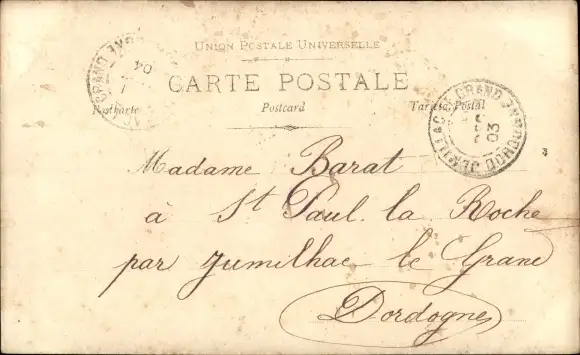 UNION POSTALE UNIVERSELLE
CARTE POSTALE
Postkarte Postcard Tarjeta Postal
Madame Barat
à St Paul. la Roche
par Jumilhac le Grand
Dordogne
GRAND
04
JUMILHAC LE GRAND DORDOGNE
03